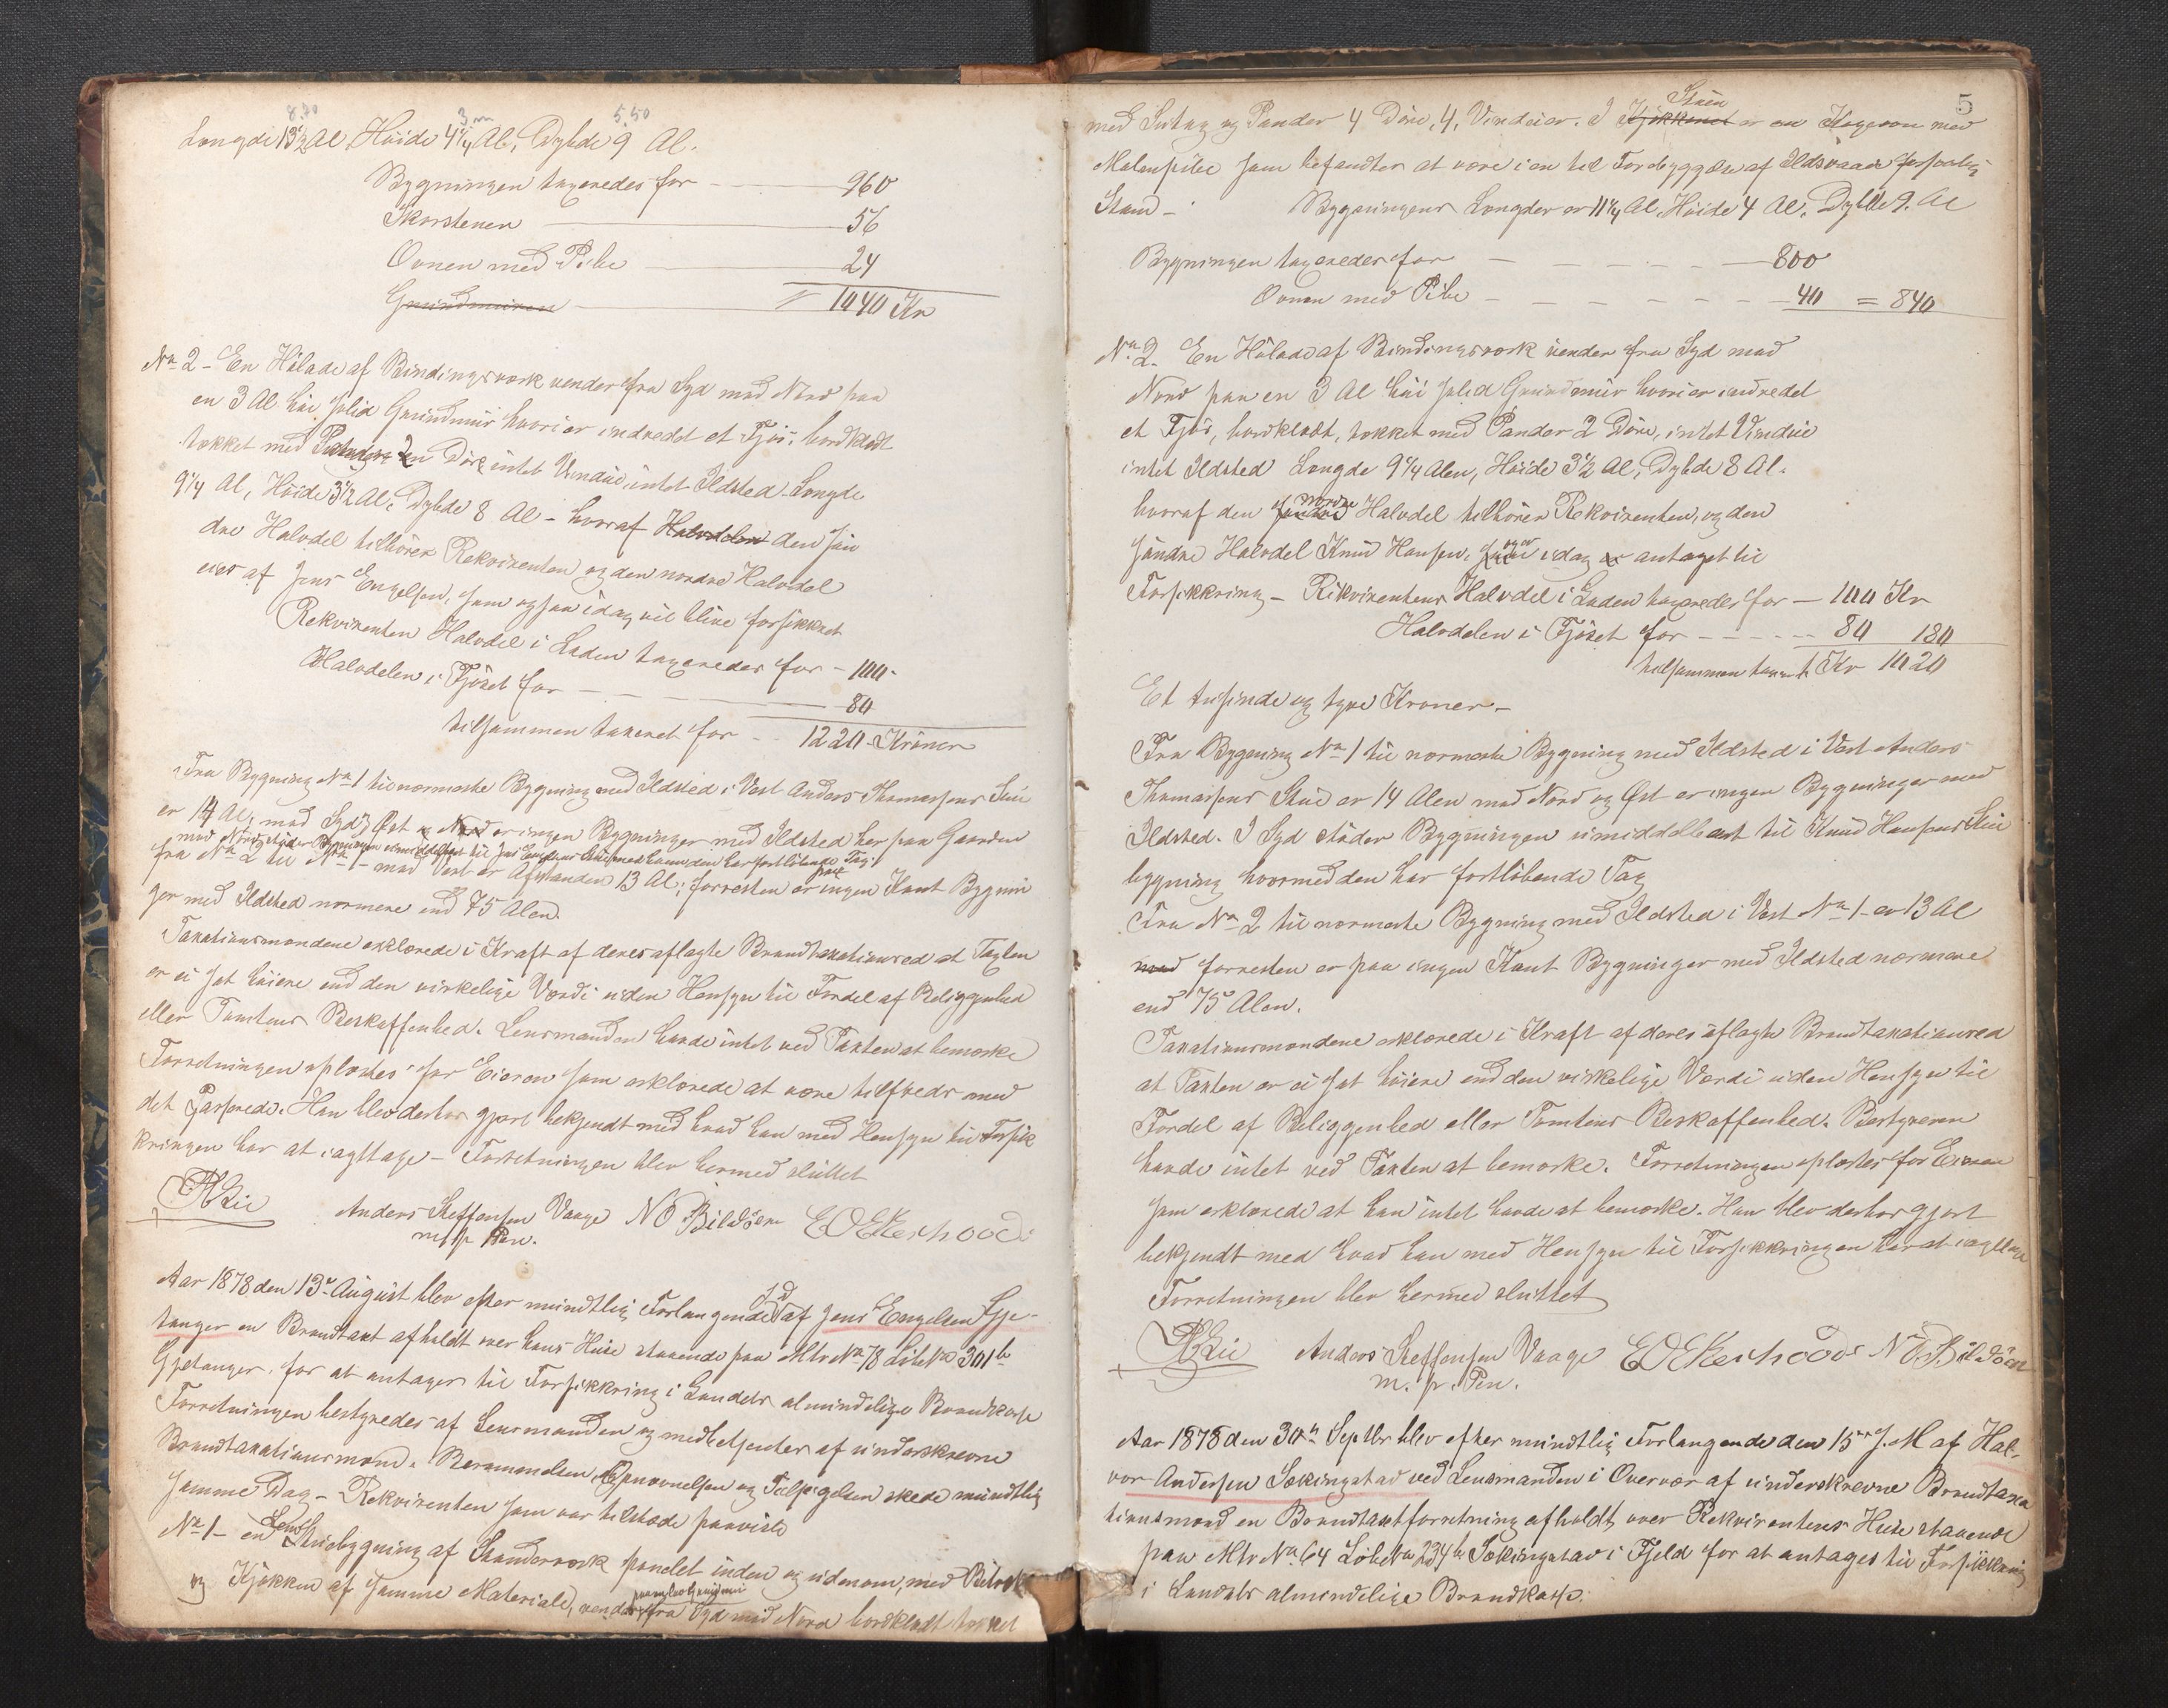 8.70 3 m 5.50
Længde 13½ Al Høide 4¼ Al, Dybde 9 Al.
Bygningen taxeredes for — 960
Skorstenen — 56
Ovnen med Pibe 24
Grundmuren — = 1040 Kr
No 2 - En Hølade af Bindingsværk vender fra Syd mod Nord paa
en 3 Al høi solid Grundmuur hvori er indredet et Fjøs, bordklædt
tækket med Dør intet Vindue, intet Ildsted. Længde
9¼ Al, Høide 3½ Al, Dybde 8 Al - hvoraf Halvdelen den søn
dre Halvdel tilhører Rekvirenten og den nordre Halvdel
eies af Jens Engelsen, som ogsaa idag vil blive forsikkret
Rekvirenten Halvdel i Laden taxeredes for - 100.
Halvdelen i Fjøset for — 80
tilsammen taxeret for - - 1220 - Kroner
Fra Bygning No 1 til nærmeste Bygning med Ildsted i Vest Anders Thomassens Stue
er 14 Al, mod Syd, Øst og Nord er ingen Bygninger med Ildsted her paa Gaarden
mod Nord støder Bygningen umiddelbart til Jens Engelsens Stue med hvem den har fortløbende Tag.
fra No 2 til No 1 - mod Vest er Afstanden 13 Al; forresten er paa ingen Kant Bygnin
ger med Ildsted nærmere end 75 Alen.
Taxationsmændene erklærede i Kraft af deres aflagte Brandtaxationsed at Taxten
er ei sat høiere end den virkelige Værdi uden Hensyn til Fordel af Beliggenhed
eller Tomtens Beskaffenhed. Lensmanden havde intet ved Taxten at bemærke
Forretningen oplæstes for Eieren som erklærede at være tilfreds med
det Passerede. Han blev derhos gjort bekjendt med hvad han med Hensyn til Forsik
kringen har at iagttage - Forretningen blev hermed sluttet
Anders Steffensen Vaage NO Bildøen EOEkerhovd
m p Pen.
Aar 1878 den 13de August blev efter mundtlig Forlangende s. D. af Jens Engelsen Gje-
tanger en Brandtaxt afholdt over hans Huse staaende paa Mtr No 78 Løb No 301b
Gjetanger, for at antages til Forsikkring i Landets almindelige Brandkasse
Forretningen bestyredes af Lensmanden og medbetjentes af underskrevne
Brandtaxationsmænd. Berammelsen, Opnævnelsen og Tilsigelsen skede mundtlig
samme Dag - Rekvirenten som var tilstede paaviste
No 1 - en Stuebygning af Stenderværk panelet inden og udenom, med
og Kjøkken af samme Materiale, vender fra Syd mod Nord bordklædt tækket
5
med Sutag og Pander 4 Døre, 4, Vinduer. I Kjøkkenet Stuen er en Kogeovn med
Malmpibe som befandtes at være i en til Forebyggelse af Ildsvaade forsvarlig
Stand - Bygningens Længder er 11¼ Al, Høide 4 Al, Dybde 9. Al
Bygningen taxeredes for — 800
Ovnen med Pibe — 40 = 840
No 2. En Hølade af Bindingsværk vender fra Syd mod
Nord paa en 3 Al høi solid Grundmuur hvori er indredet
et Fjøs, bordklædt, tækket med Pander 2 Døre, intet Vindue
intet Ildsted Længde 9¼ Alen, Høide 3½ Al, Dybde 8 Al.
hvoraf den nordre Halvdel tilhører Rekvirenten, og den
søndre Halvdel Knud Hansen, og er idag antaget til
Forsikkring - Rekvirentens Halvdel i Laden taxeredes for — 100 Kr
Halvdelen i Fjøset for — 80 180
tilsammen taxert Kr 1020
Et tusinde og tyve Kroner -
Fra Bygning No 1 til nærmeste Bygning med Ildsted i Vest Anders
Thomassens Stue er 14 Alen mod Nord og Øst er ingen Bygninger med
Ildsted. I Syd støder Bygningen umiddelbart til Knud Hansens Stue
bygning hvormed den har fortløbende Tag
Fra No 2 til nærmeste Bygning med Ildsted i Vest No 1 - er 13 Al
mod forresten er paa ingen Kant Bygninger med Ildsted nærmere
end 75 Alen.
Taxationsmændene erklærede i Kraft af deres aflagte Brandtaxationsed
at Taxten er ei sat høiere end den virkelige Værdi uden Hensyn til
Fordel af Beliggenhed eller Tomtens Beskaffenhed. Bestyreren
havde intet ved Taxten at bemærke. Forretningen oplæstes for Eieren
som erklærede at han intet havde at bemærke. Han blev derhos gjort
bekjendt med hvad han med Hensyn til Forsikkringen har at iagttage
Forretningen blev hermed sluttet
Anders Steffensen Vaage EOEkerhovd NO Bildøen
m. p. Pen.
Aar 1878 den 30te Septbr blev efter mundtlig Forlangende den 15de s. M af Hal-
vor Andersen Sækingstad ved Lensmanden i Overvær af underskrevne Brandtaxa
tionsmænd en Brandtaxtforretning afholdt over Rekvirentens Huse staaende
paa Mtr No 64 Løb No 234b Sækingstad i Fjeld for at antages til Forsikkring
i Landets almindelige Brandkasse.